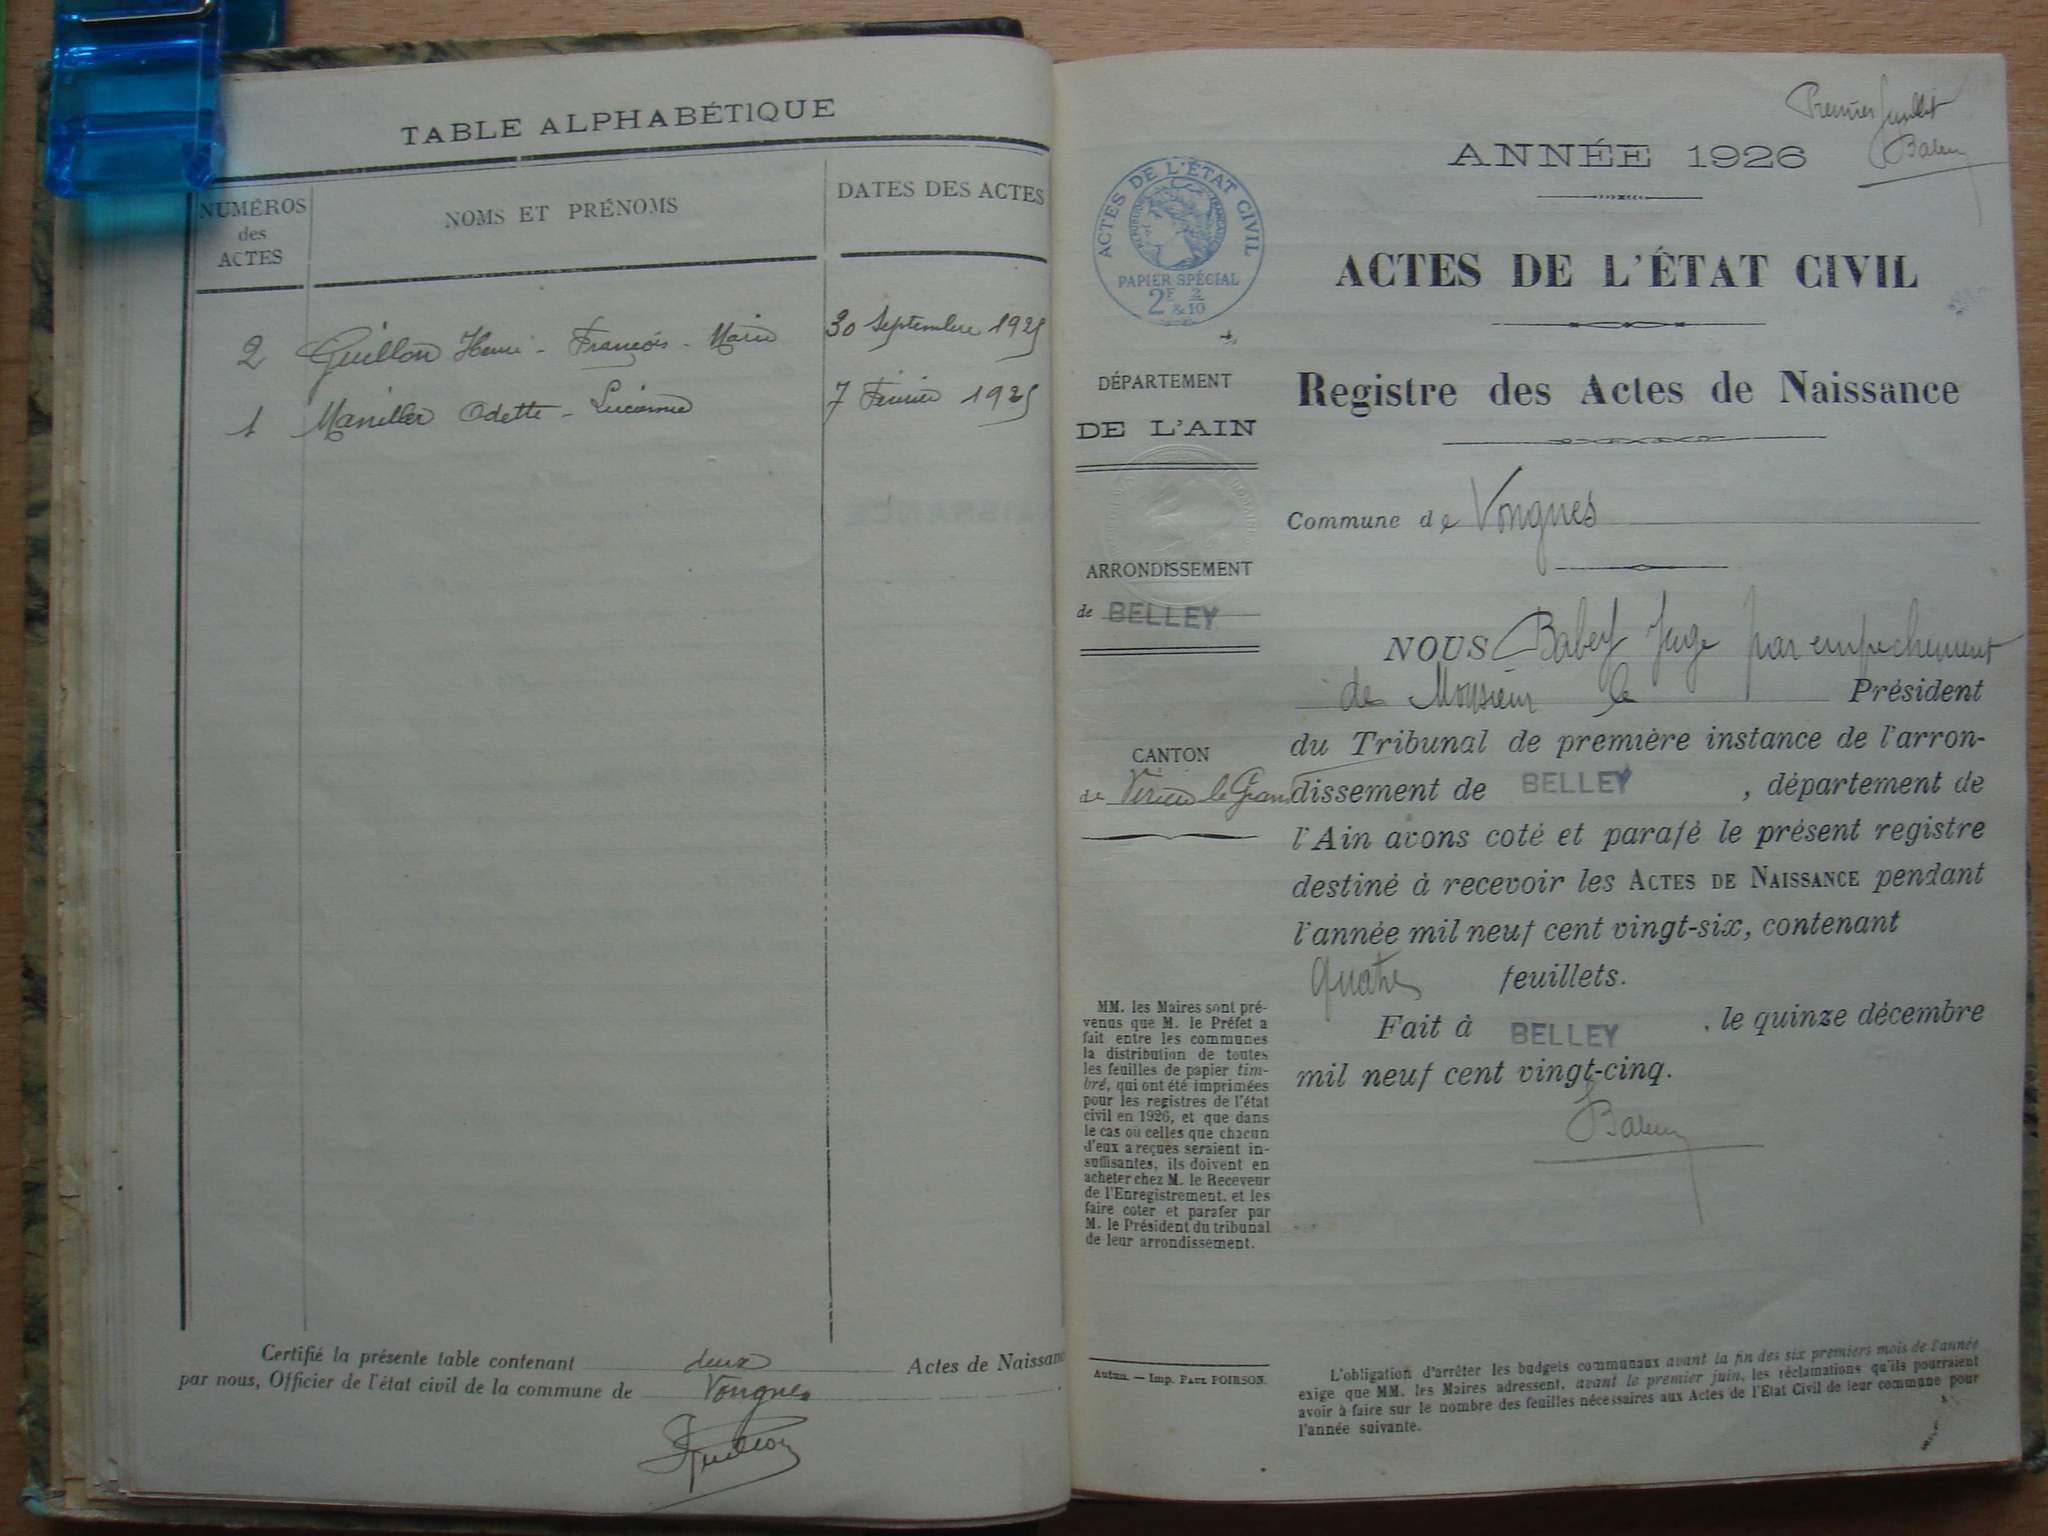 TABLE ALPHABÉTIQUE
NUMÉROS
des
ACTES
NOMS ET PRÉNOMS
DATES DES ACTES
2 Guillon Henri - François - Marie 30 Septembre 1925
1 Maniller Odette - Lucienne 7 Février 1925
Certifié la présente table contenant deux Actes de Naissanc
par nous, Officier de l'état civil de la commune de Vongnes
Premier feuillet
ANNÉE 1926
ACTES DE L'ÉTAT CIVIL
RÉPUBLIQUE FRANÇAISE
PAPIER SPÉCIAL
2F 2
&10
ACTES DE L'ÉTAT CIVIL
Registre des Actes de Naissance
DÉPARTEMENT
DE L'AIN
Commune de Vongnes
ARRONDISSEMENT
de BELLEY
CANTON
de Virieu le Grand
NOUS Juge par empechement
de Monsieur le Président
du Tribunal de première instance de l'arron-
dissement de BELLEY, département de
l'Ain avons coté et parafé le présent registre
destiné à recevoir les ACTES DE NAISSANCE pendant
l'année mil neuf cent vingt-six, contenant
quatre feuillets.
Fait à BELLEY, le quinze décembre
mil neuf cent vingt-cinq.
MM. les Maires sont pré-
venus que M. le Préfet a
fait entre les communes
la distribution de toutes
les feuilles de papier tim-
bré, qui ont été imprimées
pour les registres de l'état
civil en 1926, et que dans
le cas où celles que chacun
d'eux a reçues seraient in-
suffisantes, ils doivent en
acheter chez M. le Receveur
de l'Enregistrement, et les
faire coter et parafer par
M. le Président du tribunal
de leur arrondissement.
Autun. — Imp. PAUL POIRSON.
L'obligation d'arrêter les budgets communaux avant la fin des six premiers mois de l'année
exige que MM. les Maires adressent, avant le premier juin, les réclamations qu'ils pourraient
avoir à faire sur le nombre des feuilles nécessaires aux Actes de l'Etat Civil de leur commune pour
l'année suivante.